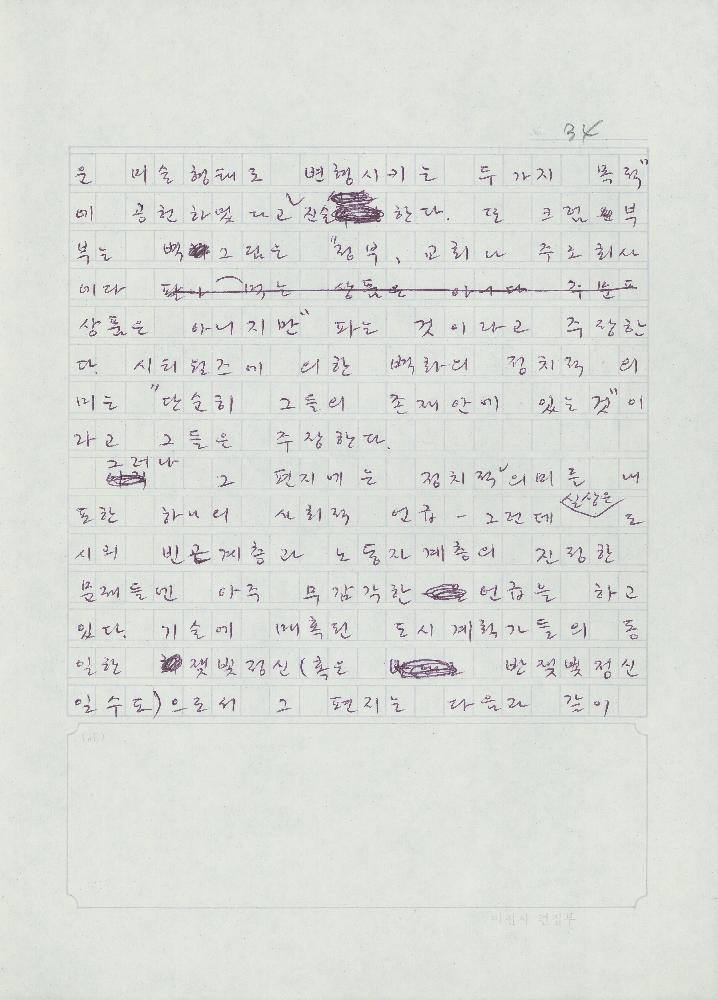 34
운 미술형태로 변형시키는 두가지 목적"
에 공헌하였다고 진술한다. 또 크럼부
부는 백 그림은 "정부, 교회나 주조회사
에다 팔아먹는 상품은 아니다 주문표
상품은 아니지만" 파는 것이라고 주장한
다. 시티월즈에 의한 벽화의 정치적 의
미는 "단순히 그들의 존재안에 있는 것"이
라고 그들은 주장한다.
그러나 그 편지에는 정치적 의미를 내
포한 하나의 사회적 언급 - 그런데 실상은 도
시의 빈곤계층과 노동자계층의 진정한
문제들엔 아주 무감각한 언급을 하고
있다. 기술에 매혹된 도시계획가들의 동
일한 잿빛정신(혹은 반잿빛정신
일수도)으로서 그 편지는 다음과 같이
미진사 편집부